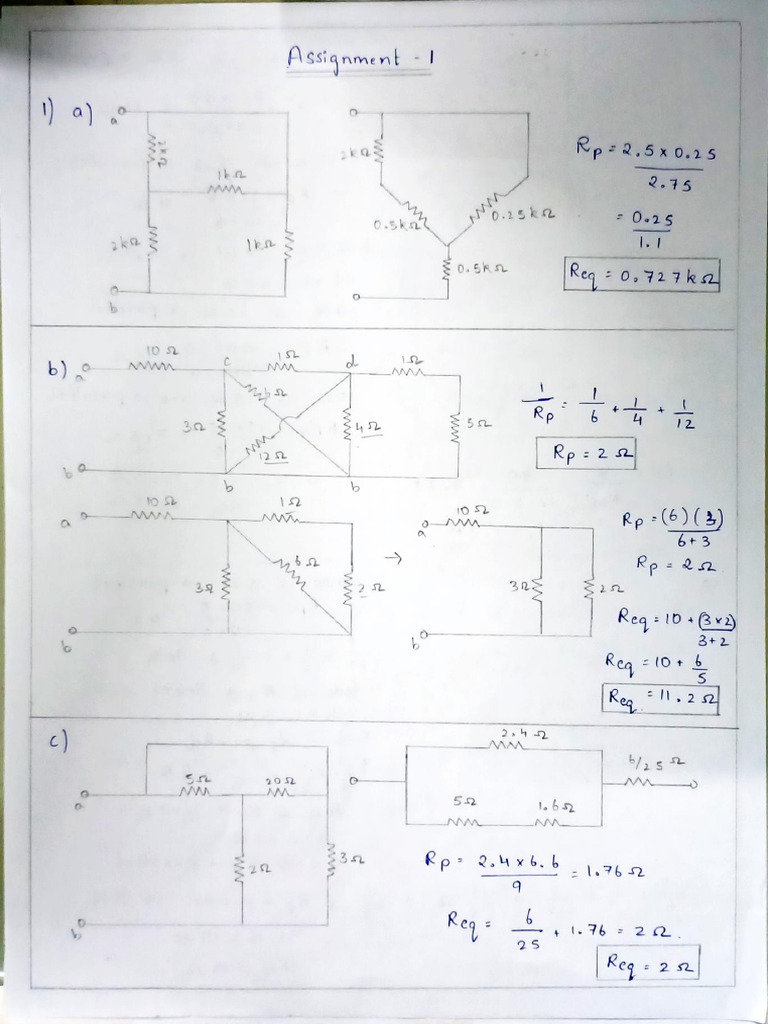 Assignment - 1
1) a)
a
2kΩ
1kΩ
2kΩ
1kΩ
b
2kΩ
0.5kΩ
0.25kΩ
0.5kΩ
Rp = 2.5 x 0.25
2.75
= 0.25
1.1
Req = 0.727kΩ
b)
a
10Ω
c
1Ω
d
1Ω
3Ω
6Ω
12Ω
4Ω
5Ω
b
b
b
1/Rp = 1/6 + 1/4 + 1/12
Rp = 2 Ω
a
10Ω
1Ω
3Ω
6Ω
2Ω
b
→
a
10Ω
3Ω
2Ω
b
Rp = (6)(3)
6+3
Rp = 2Ω
Req = 10 + (3x2)
3+2
Req = 10 + 6
5
Req = 11.2Ω
c)
a
5Ω
20Ω
2Ω
3Ω
b
2.4Ω
5Ω
1.6Ω
6/25 Ω
Rp = 2.4 x 6.6 = 1.76Ω
9
Req = 6 + 1.76 = 2Ω.
25
Req = 2Ω